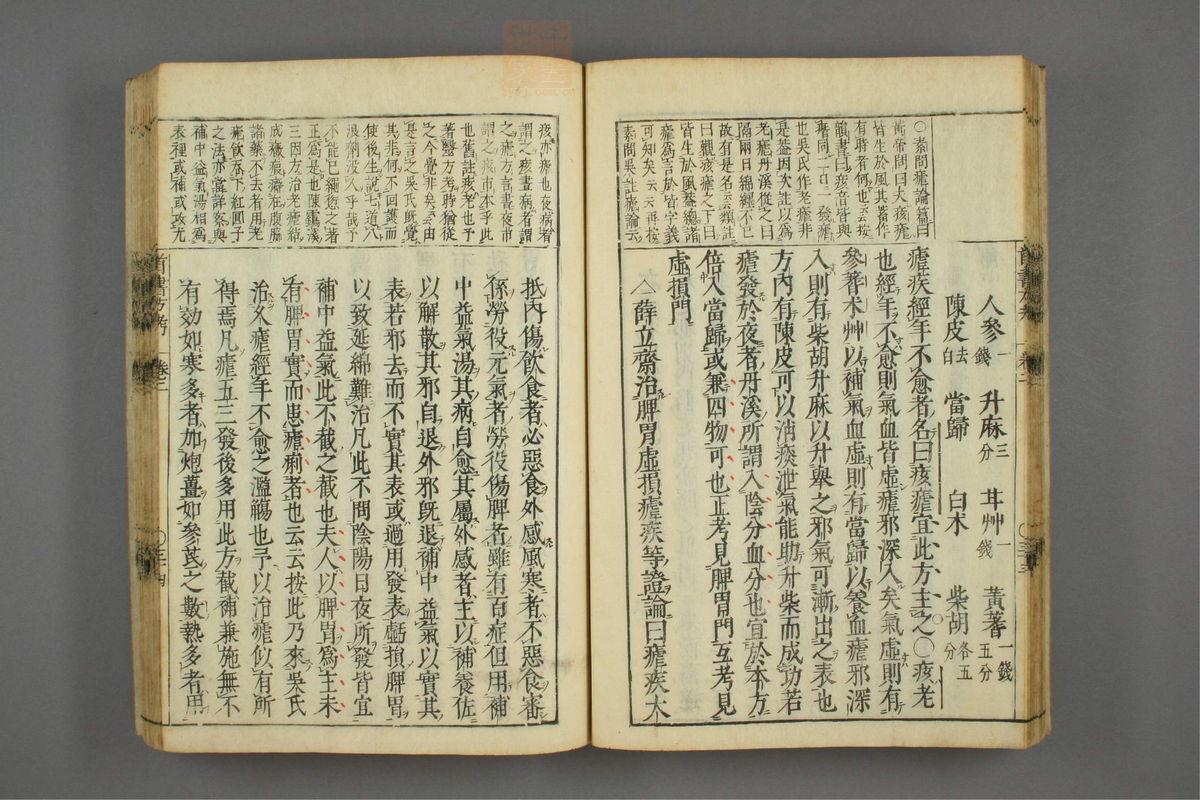 ○素問瘧論篇曰
黃帝問曰夫痎瘧
皆生於風其蓄作
有時者何也云云按
韻書曰痎音皆與
痎同二日一發瘧
也吳氏作老瘧非
是蓋因次註以爲
老瘧丹溪從之曰
隔兩日綿纏不已
故有是名云云類註
曰觀痎瘧之下曰
皆生於風蓋總諸
瘧爲言於皆字義
可知矣云云再按
素問吳註瘧論云
人參一錢 升麻三分 甘艸一錢 黃蓍一錢五分
陳皮去白 當歸 白朮 柴胡各五分
瘧疾經年不愈者名曰痎瘧宜此方主之○痎老
也經年不愈則氣血皆虛瘧邪深入矣氣虛則有
參蓍朮艸以補氣血虛則有當歸以養血瘧邪深
入則有柴胡升麻以升舉之邪氣可漸出之表也
方內有陳皮可以消痰泄氣能助升柴而成功若
瘧發於夜者丹溪所謂入陰分血分也宜於本方
倍入當歸或兼四物可也正考見脾胃門互考見
虛損門
△薛立齋治脾胃虛損瘧疾等證論曰瘧疾大
痎亦瘧也夜病者
謂之痎晝病者謂
之瘧方言晝夜市
謂之痎市本乎此
也舊註痎老也予
著醫方考時猶從
之今覺非矣云云由
是言之吳氏既覺
其非何不回護而
使後生說七道八
浪痢沒入乎哉予
不能已繩愆之著
正爲是也陳靄溪
三因方治老瘧綿
成癥瘕癖在腹脇
諸藥不去者用老
瘧飲吞下紅圓子
之法亦當詳察與
補中益氣湯相爲
表裡或補或攻尤
抵內傷飲食者必惡食外感風寒者不惡食審
係勞役元氣者勞役傷脾者雖有百症但用補
中益氣湯其病自愈其屬外感者主以補養佐
以解散其邪自退外邪既退補中益氣以實其
表若邪去而不實其表或過用發表虧損脾胃
以致延綿難治凡此不問陰陽日夜所發皆宜
補中益氣此不截之截也夫人以脾胃爲主未
有脾胃實而患瘧痢者也云云按此乃來吳氏
治久瘧經年不愈之濫觴也予以治瘧似有所
得焉凡瘧五三發後多用此方截補兼施無不
有効如寒多者加炮薑如參芪之數熱多者用